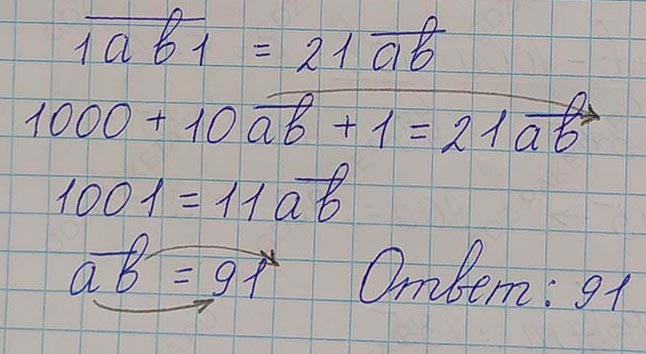 1ab1 = 21ab
1000 + 10ab + 1 = 21ab
1001 = 11ab
ab = 91 Ответ: 91